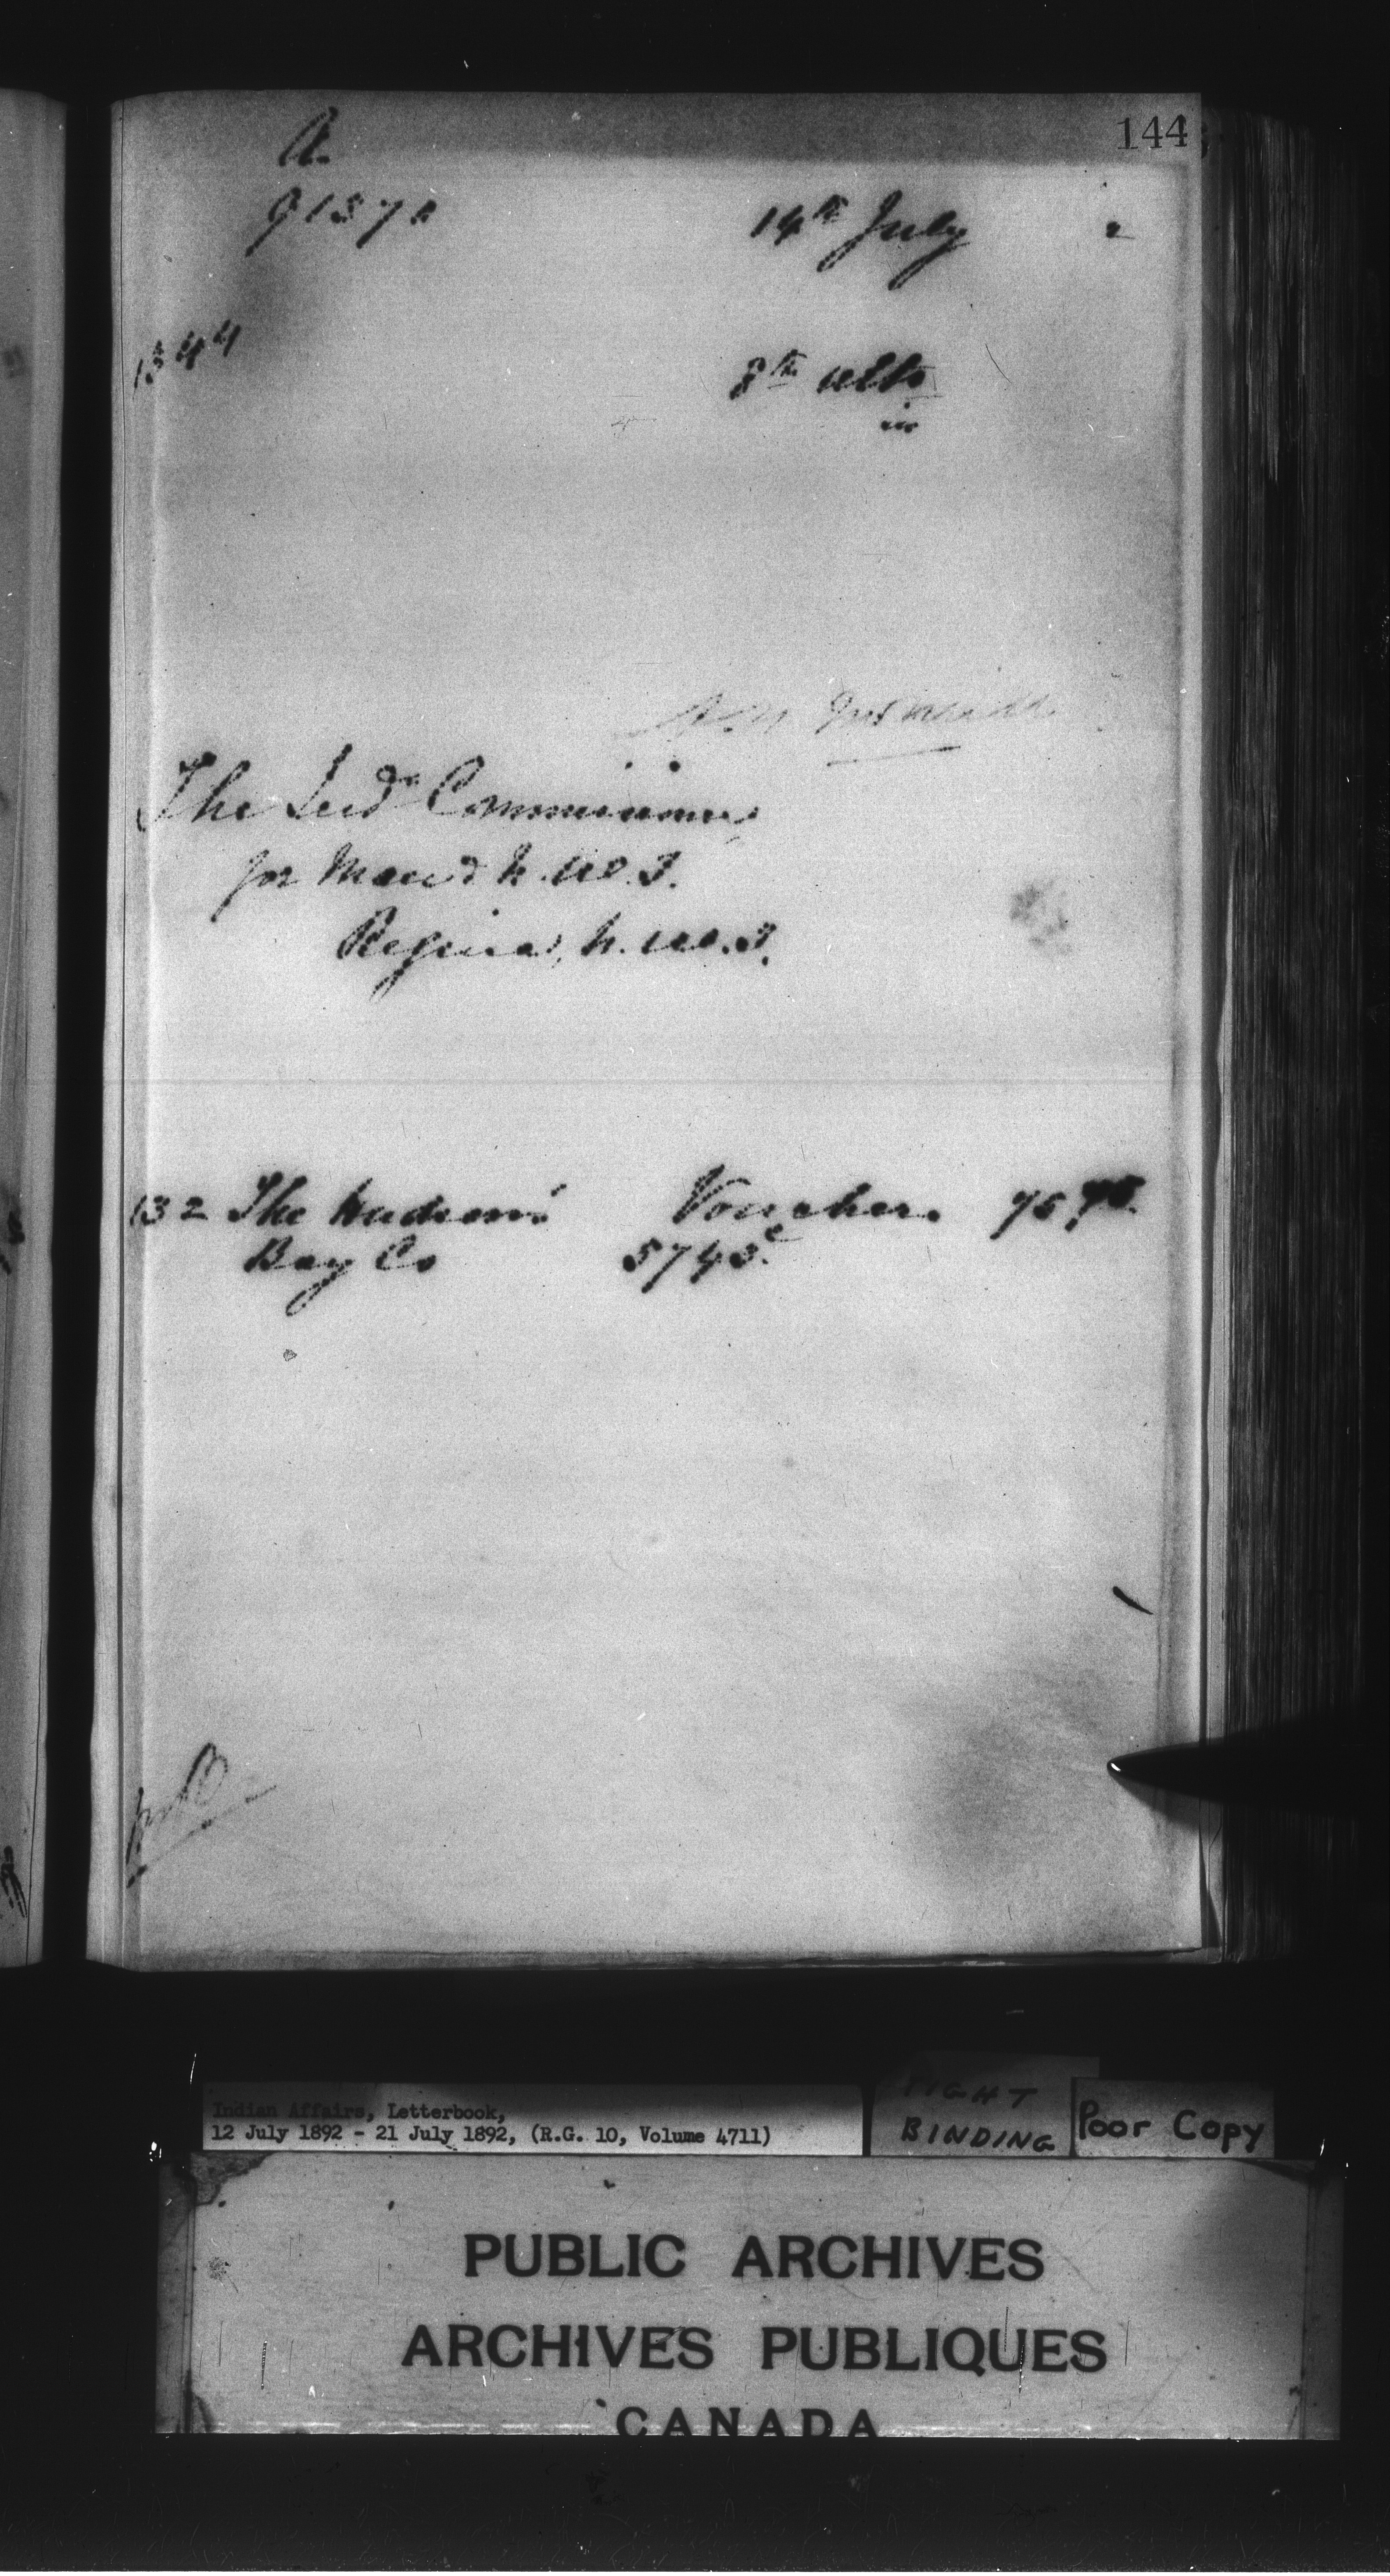 144
A.
14th July 2
1344
8th ulto
in
The Ind. Commissioner,
for Man. & N.W.T.
Regina, N.W.T.
132 The Hudson's Voucher. 75.75.
Bay Co 5743
Indian Affairs, Letterbook,
12 July 1892 - 21 July 1892, (R.G. 10, Volume 4711)
TIGHT
BINDING
Poor Copy
PUBLIC ARCHIVES
ARCHIVES PUBLIQUES
CANADA